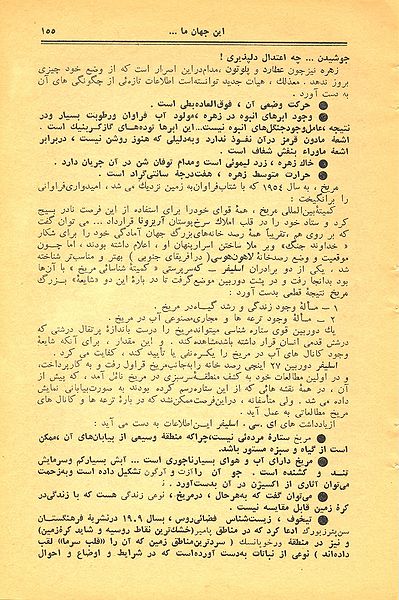 این جهان ما ... ۱۵۵
جوشیدن ... چه اعتدال دلپذیری !
زهره نیزچون عطارد و پلوتون ،مدام‌دراین اصرار است که از وضع خود چیزی
بروز ندهد . معذلك ، هیات جدید توانسته‌است اطلاعات تازه‌ئی از چگونگی های آن
به دست آورد .
● حرکت وضعی آن ، فوق‌العاده‌بطی است .
● وجود ابرهای انبوه در زهره ،مولود آب فراوان ورطوبت بسیار ودر
نتیجه ،عامل‌وجودجنگل‌های انبوه نیست... این ابرها توده‌های گازکربنیك است .
اشعهٔ مادون قرمز درآن نفوذ ندارد وبه‌دلیلی که هنوز روشن نیست ، دربرابر
اشعهٔ ماوراء بنفش شفاف است .
● خاك زهره ، زرد لیموئی است ومدام توفان شن در آن جریان دارد .
● حرارت متوسط زهره ، هفت‌درجهٔ سانتی‌گراد است .
مریخ ، به سال ۱۹۵۴ که با شتاب‌فراوان‌به زمین نزدیك می شد ، امیدواری‌فراوانی
را برانگیخت :
کمیتهٔ‌بین‌المللی مریخ ، همهٔ قوای خودرا برای استفاده از این فرصت نادر بسیج
کرد و ستاد خود را در قلب املاك سرخ‌پوستان آریزونا قرارداد... می توان گفت
که بر روی هم ،تقریباً همهٔ رصد خانه‌های بزرگ جهان آمادگی خود را برای شکار
« خداوند جنگ» وبر ملا ساختن اسرارپنهان او ، اعلام داشته بودند ، اما چون
موقعیت و وضع رصدخانهٔ لاهون‌هوسی( درافریقای جنوبی ) بهتر و مناسب‌تر شناخته
شد ، یکی از دو برادران اسلیفر – که‌سرپرستی «کمیتهٔ شناسائی مریخ » با آن‌ها
بود بدانجا رفت و در پشت دوربین موضع گرفت تا در بارهٔ این دو «شایعه» بــزرگ
مریخ نتیجهٔ قطعی بدست آورد :
۱ – مسألهٔ وجود زندگی و رشد گیــاه‌در مریخ .
۲ – مسألهٔ وجود ترعه ها و مجاری‌مصنوعی آب در مریخ .
یك دوربین قوی ستاره شناسی میتواندمریخ را درست باندازهٔ پرتقال درشتی که
درشش قدمی انسان قرار داشته باشدمشاهده‌کند . و این مقدار ، برای آنکه شایعهٔ
وجود کانال های آب در مریخ را یکسره‌نفی یا تأیید کند ، کفایت می کرد .
اسلیفر دوربین ۲۷ اینچی رصد خانه رابه‌جانب‌مریخ قراول رفت و به کارپرداخت،
و در اولین مطالعات خود به کشف منطقه‌ای‌سرسبزی در مریخ نائل آمد ، که پیش از
آن ، در همهٔ نقشه هائی که از این ستاره‌رسم کرده بودند به صورت‌بیابانی نمایش
داده می شد . ولی متأسفانه ، دراین‌فرصت‌ممکن‌نشد که در بارهٔ ترعه ها و کانال های
مریخ مطالعاتی به عمل آید .
ازیادداشت های ای . سی . اسلیفر این‌اطلاعات به دست می آید :
● مریخ ستارهٔ مرده‌ئی نیست؛چراکه منطقهٔ وسیعی از بیابان‌های آن ،ممکن
است از گیاه و سبزه مستور باشد.
● مریخ دارای آب و هوای بسیارناجوری است ... آبش بسیارکم وسرمایش
تنــد و کشنده است ، جو آن رااز ازت و آرگون تشکیل داده است وبه‌زحمت
می‌توان آثاری از اکسیژن در آن بدست‌آورد .
● می‌توان گفت که به‌هرحال ، درمریخ ، نوعی زندگی هست که با زندگی‌در
کرهٔ زمین قابل مقایسه نیست .
● تیخوف ، زیست‌شناس فضائی‌روس ، بسال ۱۹۰۹ درنشریهٔ فرهنگستان
سن‌پترزبورگ ادعا کرد که در مناطق پامیر(خشك‌ترین نقاط روسیه و شاید کرهٔ‌زمین)
و نیز در منطقهٔ ورخویانسك ( سردترین‌مناطق زمین که آن را «قلب سرما» لقب
داده‌اند ) نوعی از نباتات به‌دست آورده‌است که در شرایط و اوضاع و احوال